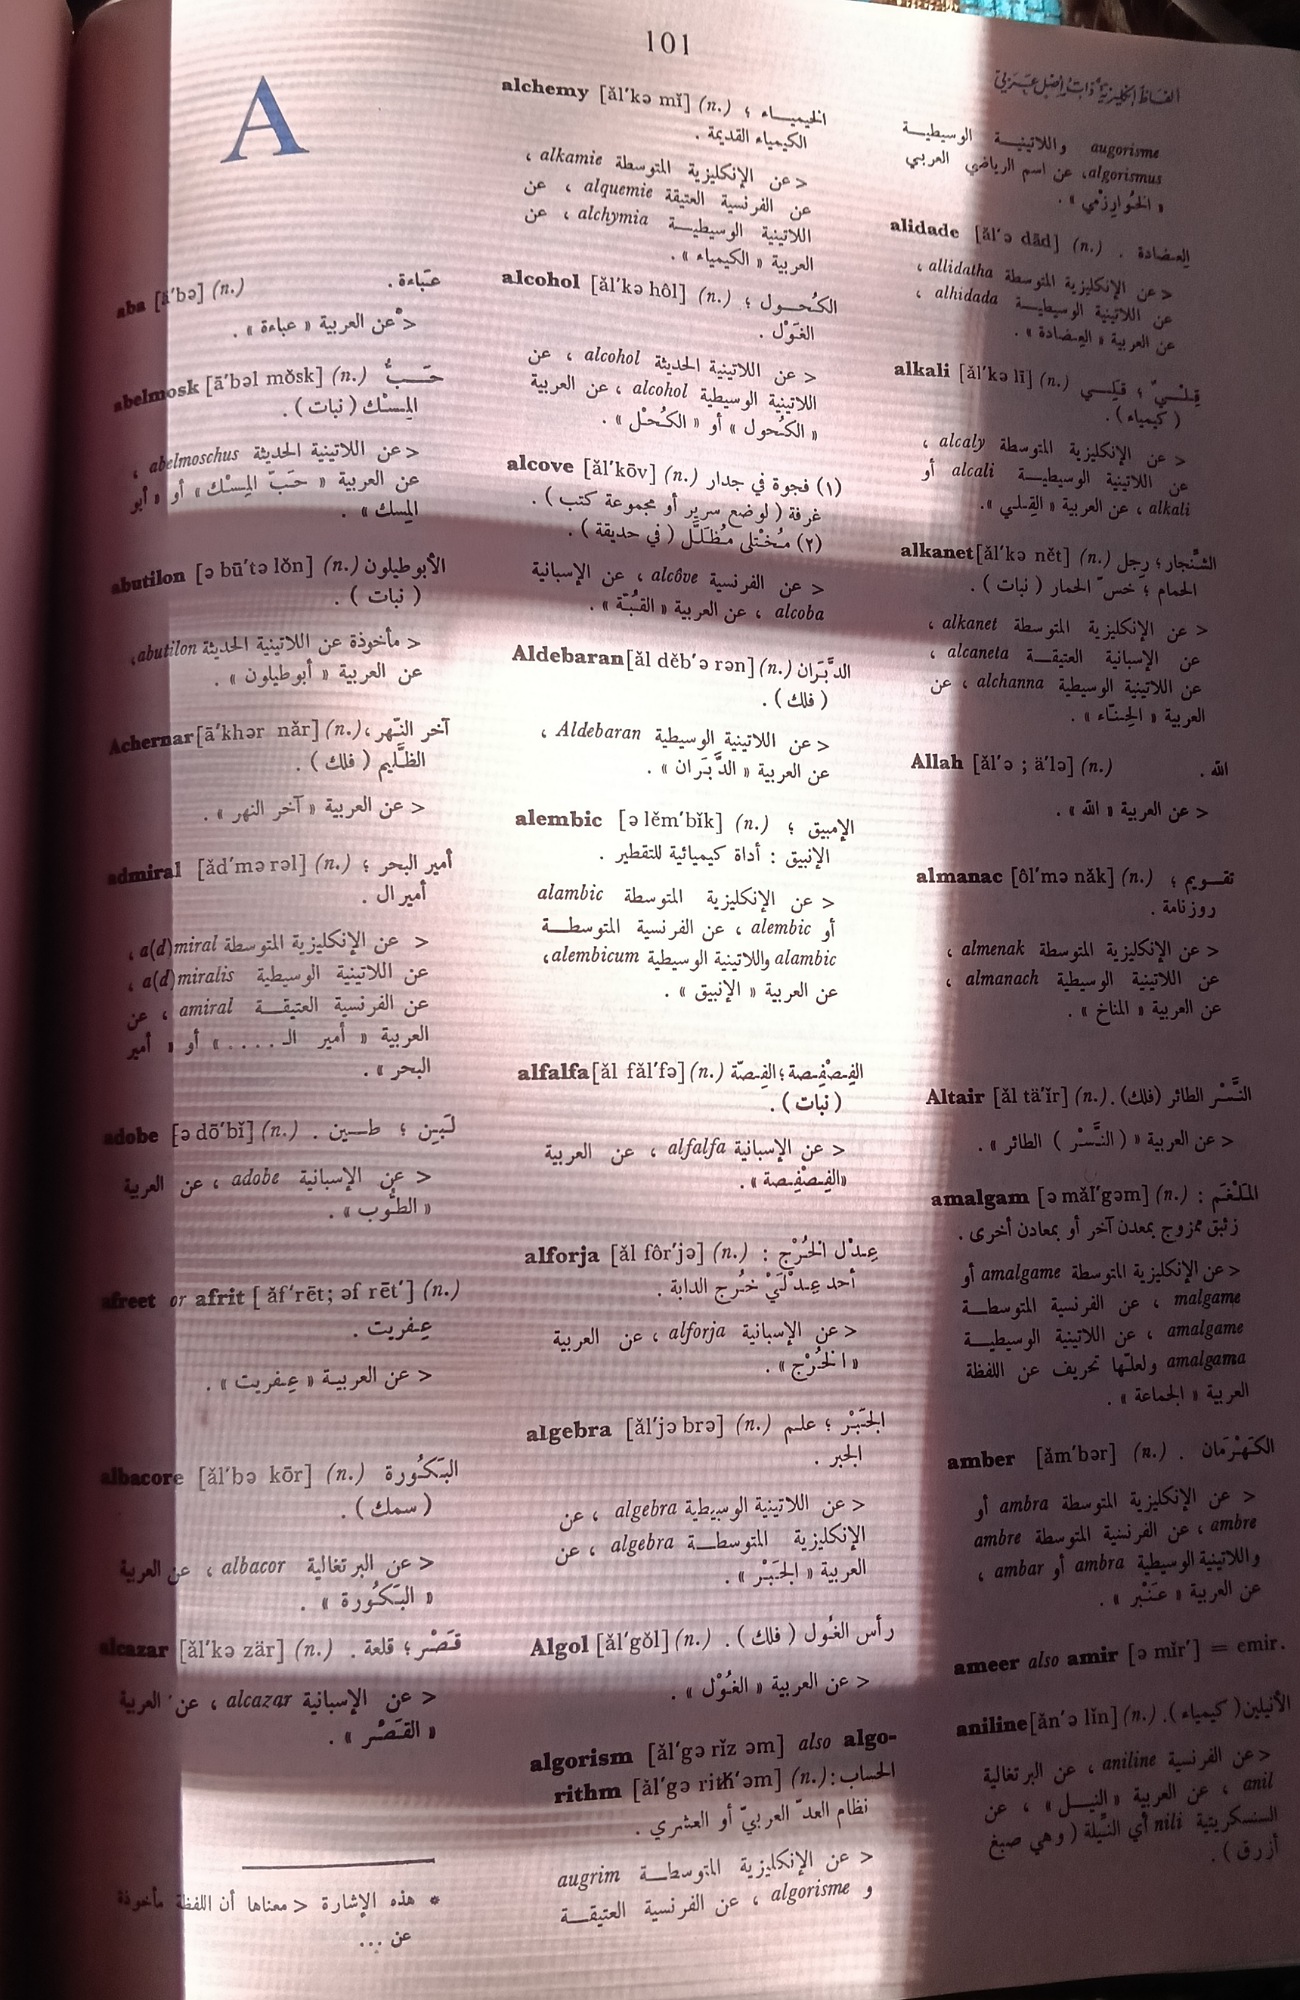 101
ألفاظ إنكليزية ذات أصل عربي
A
aba [ā′bə] (n.) عَباءة .
< عن العربية « عباءة » .
abelmosk [ā′bəl mŏsk] (n.) حَـــبُّ
المِسْك ( نبات ) .
< عن اللاتينية الحديثة abelmoschus ،
عن العربية « حَبّ المِسْك » أو « أبو
المِسك » .
abutilon [ə bū′tə lŏn] (n.) الأبوطيلون
( نبات ) .
< مأخوذة عن اللاتينية الحديثة abutilon،
عن العربية « أبوطيلون » .
Achernar [ā′khər när] (n.) آخر النّهر ،
الظَّليم ( فلك ) .
< عن العربية « آخر النهر » .
admiral [ăd′mə rəl] (n.) أمير البحر ؛
أميرال .
< عن الإنكليزية المتوسطة a(d)miral ،
عن اللاتينية الوسيطية a(d)miralis ،
عن الفرنسية العتيقــة amiral ، عن
العربية « أمير الـ .... » أو « أمير
البحر » .
adobe [ə dō′bĭ] (n.) لَبِن ؛ طــين .
< عن الإسبانية adobe ، عن العربية
« الطُّوب » .
afreet or afrit [ ăf′rēt; əf rēt′ ] (n.)
عِفريت .
< عن العربيـة « عِفريت » .
albacore [ăl′bə kōr] (n.) البَكُورة
( سمك ) .
< عن البرتغالية albacor ، عن العربية
« البَكُورة » .
alcazar [ăl′kə zär] (n.) قَصْر ؛ قلعة .
< عن الإسبانية alcazar ، عن العربية
« القَصْر » .
* هذه الإشارة < معناها أن اللفظة مأخوذة
عن ...
alchemy [ăl′kə mĭ] (n.) الخيميــاء ؛
الكيمياء القديمة .
< عن الإنكليزية المتوسطة alkamie ،
عن الفرنسية العتيقة alquemie ، عن
اللاتينية الوسيطيــة alchymia ، عن
العربية « الكيمياء » .
alcohol [ăl′kə hôl] (n.) الكُحــول ؛
الغَوْل .
< عن اللاتينية الحديثة alcohol ، عن
اللاتينية الوسيطية alcohol ، عن العربية
« الكُحول » أو « الكُحْل » .
alcove [ăl′kōv] (n.) (١) فجوة في جدار
غرفة ( لوضع سرير أو مجموعة كتب ) .
(٢) مُخْتلى مُظَلَّل ( في حديقة ) .
< عن الفرنسية alcôve ، عن الإسبانية
alcoba ، عن العربية « القُبّة » .
Aldebaran [ăl dĕb′ə rən] (n.) الدَّبَران
( فلك ) .
< عن اللاتينية الوسيطية Aldebaran ،
عن العربية « الدَّبَران » .
alembic [ə lĕm′bĭk] (n.) الإمبيق ؛
الإنبيق : أداة كيميائية للتقطير .
< عن الإنكليزية المتوسطة alambic
أو alembic ، عن الفرنسية المتوسطــة
alambic واللاتينية الوسيطية alembicum،
عن العربية « الإنبيق » .
alfalfa [ăl făl′fə] (n.) الفِصْفِصة ؛ الفِصّة
( نبات ) .
< عن الإسبانية alfalfa ، عن العربية
«الفِصْفِصة » .
alforja [ăl fôr′jə] (n.) عِدْل الخُرْج :
أحد عِدْلَيْ خُرج الدابة .
< عن الإسبانية alforja ، عن العربية
« الخُرْج » .
algebra [ăl′jə brə] (n.) الجَبْر ؛ علم
الجبر .
< عن اللاتينية الوسيطية algebra ، عن
الإنكليزية المتوسطــة algebra ، عن
العربية « الجَبْر » .
Algol [ăl′gŏl] (n.) رأس الغُول ( فلك ) .
< عن العربية « الغُوْل » .
algorism [ăl′gə rĭz əm] also algo-
rithm [ăl′gə rith′əm] (n.) الحساب :
نظام العدّ العربيّ أو العشري .
< عن الإنكليزية المتوسطــة augrim
و algorisme ، عن الفرنسية العتيقــة
augorisme واللاتينيــة الوسيطيــة
algorismus، عن اسم الرياضي العربي
« الخُوارِزْمي » .
alidade [ăl′ə dād] (n.) العِضادة .
< عن الإنكليزية المتوسطة allidatha ،
عن اللاتينية الوسيطيــة alhidada ،
عن العربية « العِضادة » .
alkali [ăl′kə lī] (n.) قِلْــيّ ؛ قِلــي
( كيمياء ) .
< عن الإنكليزية المتوسطة alcaly ،
عن اللاتينية الوسيطيــة alcali أو
alkali ، عن العربية « القِلــي ».
alkanet [ăl′kə nĕt] (n.) الشَّنجار ؛ رِجل
الحمام ؛ خسّ الحمار ( نبات ) .
< عن الإنكليزية المتوسطة alkanet ،
عن الإسبانية العتيقــة alcaneta ،
عن اللاتينية الوسيطية alchanna ، عن
العربية « الحِنّاء » .
Allah [ăl′ə ; ä′lə] (n.) الله .
< عن العربية « الله » .
almanac [ôl′mə năk] (n.) تقــويم ؛
روزنامة .
< عن الإنكليزية المتوسطة almenak ،
عن اللاتينية الوسيطية almanach ،
عن العربية « المناخ » .
Altair [ăl tä′ĭr] (n.) النَّسْر الطائر (فلك) .
< عن العربية « ( النَّسْر ) الطائر » .
amalgam [ə măl′gəm] (n.) المَلْغَم :
زئبق ممزوج بمعدن آخر أو بمعادن أخرى .
< عن الإنكليزية المتوسطة amalgame أو
malgame ، عن الفرنسية المتوسطــة
amalgame ، عن اللاتينية الوسيطيــة
amalgama ولعلّها تحريف عن اللفظة
العربية « الجماعة » .
amber [ăm′bər] (n.) الكَهْرَمان .
< عن الإنكليزية المتوسطة ambra أو
ambre ، عن الفرنسية المتوسطة ambre
واللاتينية الوسيطية ambra أو ambar ،
عن العربية « عَنْبر » .
ameer also amir [ə mĭr′] = emir.
aniline [ăn′ə lĭn] (n.) الأنيلين( كيمياء ) .
< عن الفرنسية aniline ، عن البرتغالية
anil ، عن العربية « النيــل » ، عن
السنسكريتية nili أي النِّيلة ( وهي صبغ
أزرق ) .